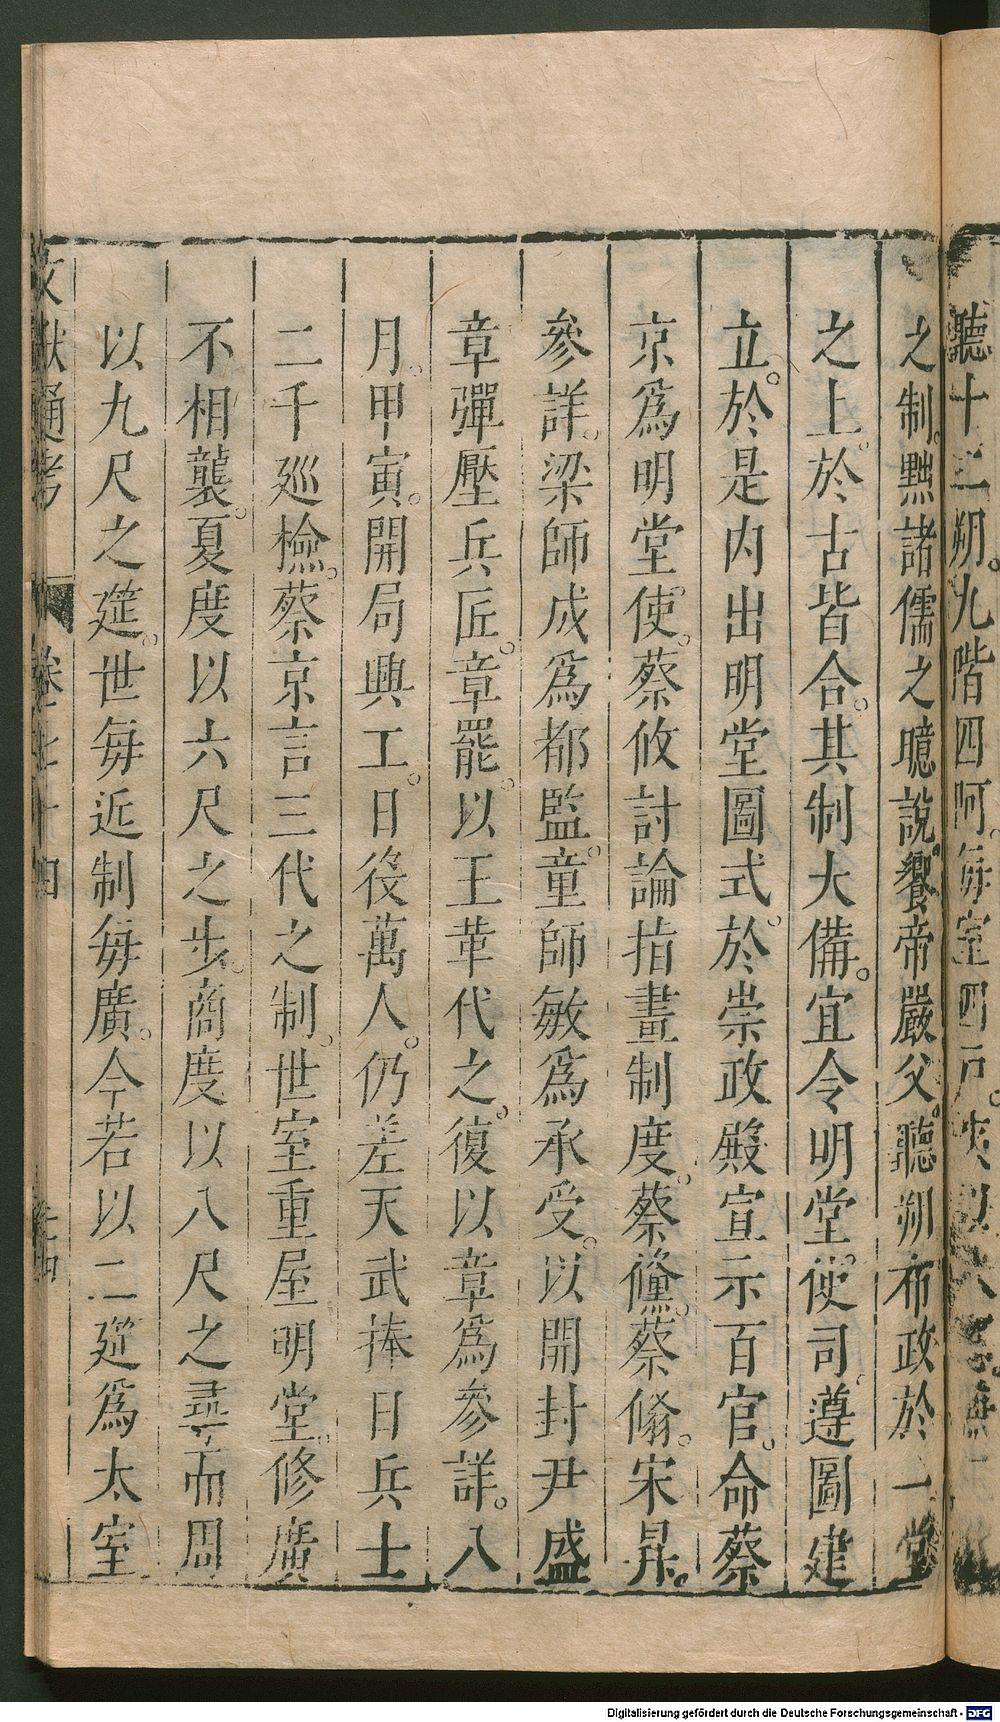 聽十二朔。九階四阿。每室四戶。夾以八
之制。黜諸儒之臆說。饗帝嚴父。聽朔布政於一堂
之上。於古皆合。其制大備。宜令明堂。使司。遵圖建
立。於是内出明堂圖式。於崇政殿宣示百官。命蔡
京爲明堂使。蔡攸討論指畫制度。蔡儵。蔡翛。宋昇。
參詳。梁師成爲都監。童師敏爲承受。以開封尹盛
章彈壓兵匠。章罷。以王革代之。復以章爲參詳。八
月。甲寅。開局興工。日役萬人。仍差天武捧日兵士
二千廵檢。蔡京言三代之制。世室重屋明堂。修廣
不相襲。夏度以六尺之步。商度以八尺之尋。而周
以九尺之筵。世每近制每廣。今若以二筵爲太室
文獻通考 卷七十四 十四
Digitalisierung gefördert durch die Deutsche Forschungsgemeinschaft - DFG